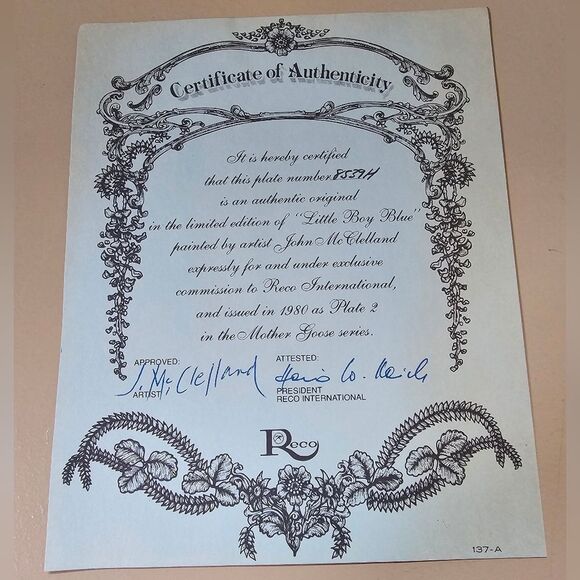 Certificate of Authenticity
It is hereby certified
that this plate number 8539H
is an authentic original
in the limited edition of "Little Boy Blue"
painted by artist John McClelland
expressly for and under exclusive
commission to Reco International,
and issued in 1980 as Plate 2
in the Mother Goose series.
APPROVED:
J. McClelland
ARTIST
ATTESTED:
PRESIDENT
RECO INTERNATIONAL
Reco
137-A